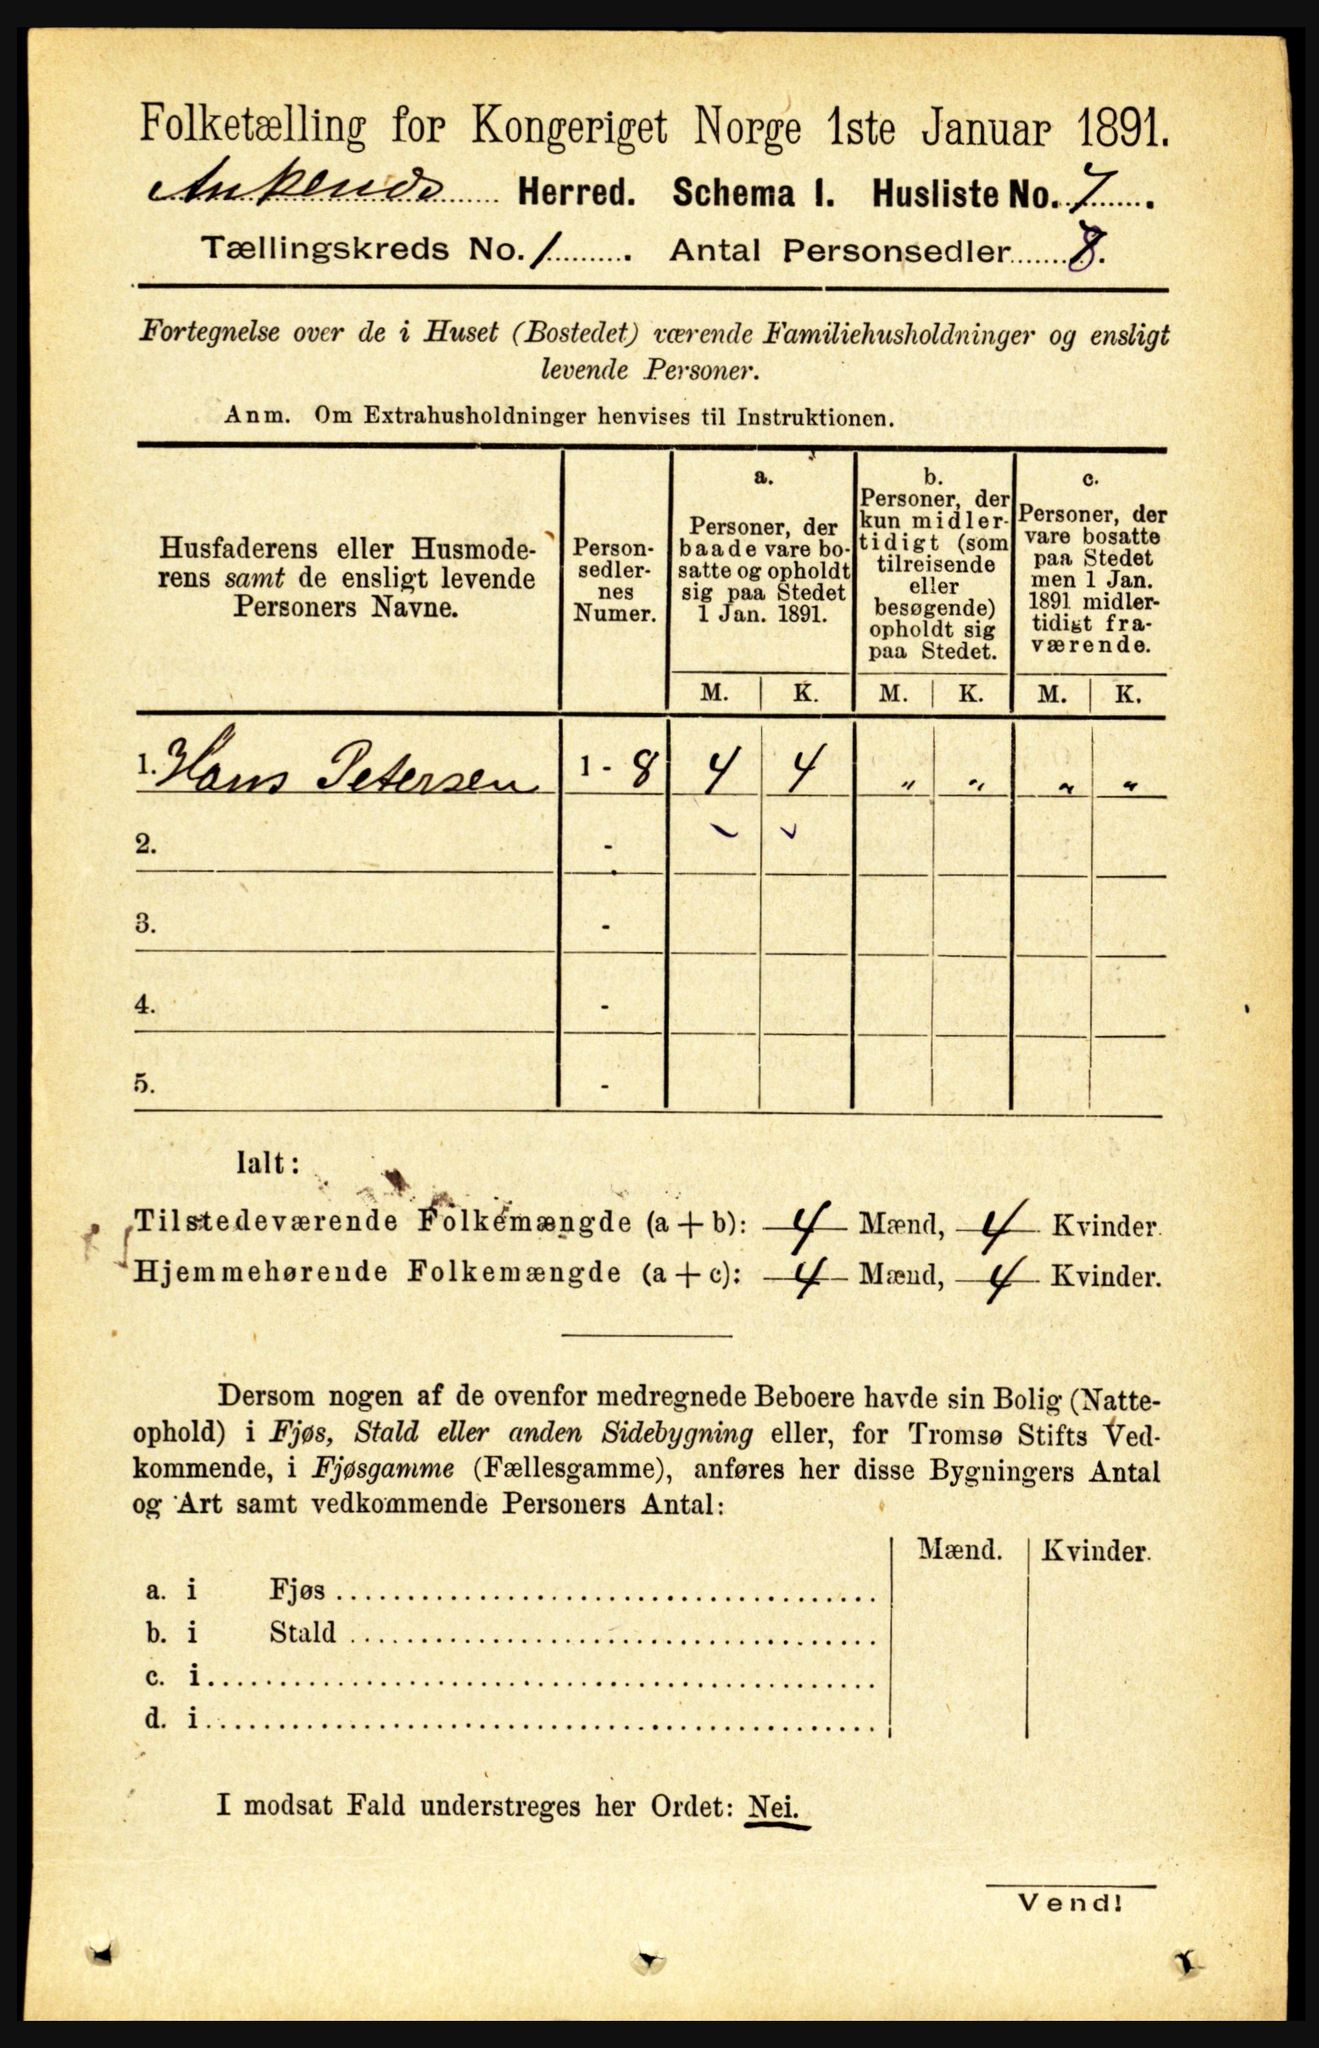 Folketælling for Kongeriget Norge 1ste Januar 1891.
Ankenes Herred. Schema I. Husliste No. 7.
Tællingskreds No. 1. Antal Personsedler 8.
Fortegnelse over de i Huset (Bostedet) værende Familiehusholdninger og ensligt
levende Personer.
Anm. Om Extrahusholdninger henvises til Instruktionen.
Husfaderens eller Husmode-
rens samt de ensligt levende
Personers Navne.
Person-
sedler-
nes
Numer.
a.
Personer, der
baade vare bo-
satte og opholdt
sig paa Stedet
1 Jan. 1891.
b.
Personer, der
kun midler-
tidigt (som
tilreisende
eller
besøgende)
opholdt sig
paa Stedet.
c.
Personer, der
vare bosatte
paa Stedet
men 1 Jan.
1891 midler-
tidigt fra-
værende.
M. K. M. K. M. K.
1. Hans Petersen 1 - 8 4 4 " " " "
2. -
3. -
4. -
5. -
Ialt:
Tilstedeværende Folkemængde (a + b): 4 Mænd, 4 Kvinder.
Hjemmehørende Folkemængde (a + c): 4 Mænd, 4 Kvinder.
Dersom nogen af de ovenfor medregnede Beboere havde sin Bolig (Natte-
ophold) i Fjøs, Stald eller anden Sidebygning eller, for Tromsø Stifts Ved-
kommende, i Fjøsgamme (Fællesgamme), anføres her disse Bygningers Antal
og Art samt vedkommende Personers Antal:
Mænd. Kvinder.
a. i Fjøs
b. i Stald
c. i
d. i
I modsat Fald understreges her Ordet: Nei.
Vend!